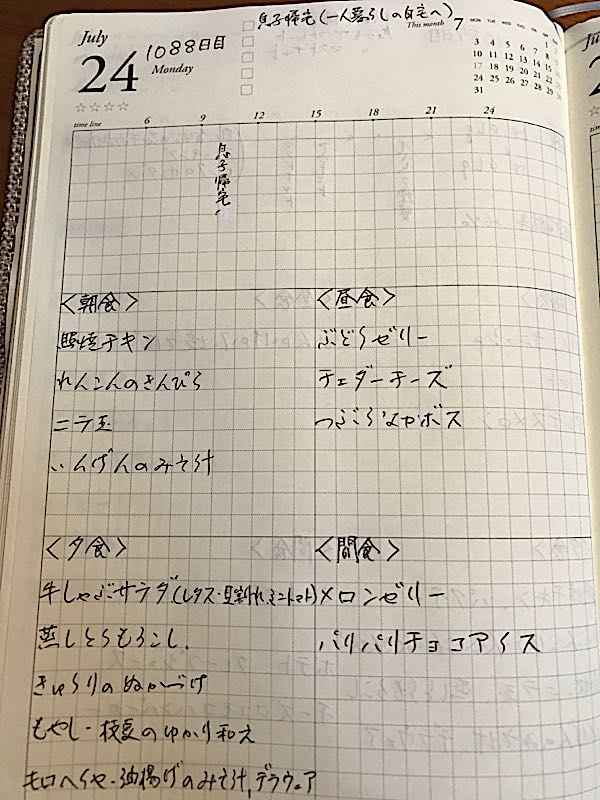 July
24
1088日目
Monday
☆☆☆☆
息子帰宅(一人暮らしの自宅へ)
This month 7
MON TUE WED THU FRI SAT SUN
3 4 5 6 7 8
10 11 12 13 14 15 16
17 18 19 20 21 22
24 25 26 27 28 29 30
31
time line 6 9 12 15 18 21 24
息子帰宅
<朝食>
照焼チキン
れんこんのきんぴら
ニラ玉
いんげんのみそ汁
<昼食>
ぶどうゼリー
チェダーチーズ
つぶらなカボス
<夕食>
牛しゃぶサラダ(レタス・貝割れ・ミニトマト)
蒸しとうもろこし
きゅうりのぬかづけ
もやし・枝豆のゆかり和え
モロヘイヤ・油揚げのみそ汁、デラウェア
<間食>
メロンゼリー
パリパリチョコアイス